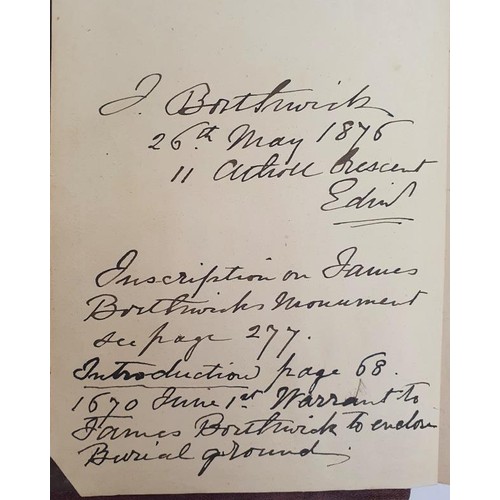 J. Borthwick
26th May 1876
11 Atholl Crescent
Edinr
Inscription on James
Borthwicks Monument
see page 277.
Introduction page 68.
1670 June 1st Warrant to
James Borthwick to enclose
Burial ground.